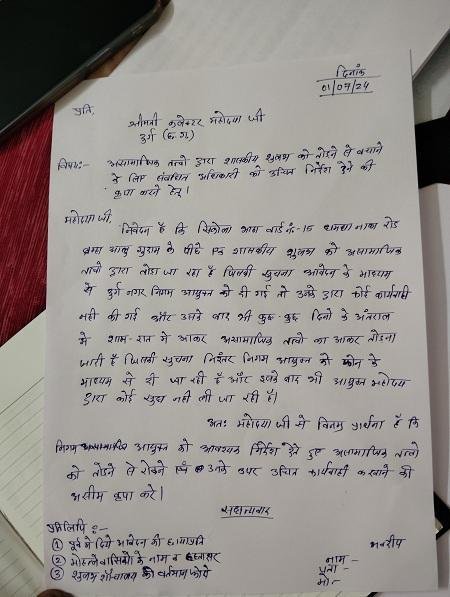 दिनांक
01/07/24
प्रति,
श्रीमती कलेक्टर महोदया जी
दुर्ग (छ.ग.)
विषय:- असामाजिक तत्वो द्वारा शासकीय सुलभ को तोडने से बचाने
के लिए संबंधित अधिकारी को उचित निर्देश देने की
कृपा करने हेतु।
महोदया जी,
निवेदन है कि सिकोला भाठा वार्ड नं-15 नाका रोड
के पीछे एक शासकीय सुलभ को असामाजिक
तत्वो द्वारा तोडा जा रहा है जिसकी सुचना आवेदन के माध्यम
से दुर्ग नगर निगम आयुक्त को दी गई तो उनके द्वारा कोई कार्यवाही
नही की गई और उसके बाद भी कुछ-कुछ दिनो के अंतराल
मे शाम-रात मे आकर असामाजिक तत्वो का आकर तोडना
जारी है जिसकी सुचना निरंतर निगम आयुक्त को फोन के
माध्यम से दी जा रही है और इसके बाद भी आयुक्त महोदय
द्वारा कोई सुध नही ली जा रही है।
अतः महोदया जी से विनम्र प्रार्थना है कि
निगम आयुक्त को आवश्यक निर्देश देते हुए असामाजिक तत्वो
को तोडने से रोकने एवं उनके उपर उचित कार्यवाही करवाने की
असीम कृपा करे।
सधन्यवाद
प्रतिलिपि :-
① पूर्व मे दिये आवेदन की छायाप्रति
② मोहल्ले वासियो के नाम व हस्ताक्षर
③ सुलभ शौचालय की वर्तमान फोटो
भवदीय
नाम -
पता -
मो.-